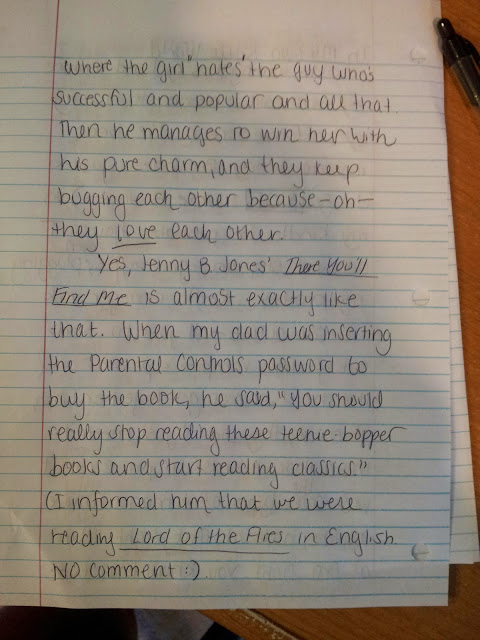 where the girl "hates" the guy who's
successful and popular and all that.
Then he manages to win her with
his pure charm, and they keep
bugging each other because—oh—
they love each other.
Yes, Jenny B Jones' There You'll
Find Me is almost exactly like
that. When my dad was inserting
the Parental Controls password to
buy the book, he said, "You should
really stop reading these teenie-bopper
books and start reading classics."
(I informed him that we were
reading Lord of the Flies in English.
NO comment :)